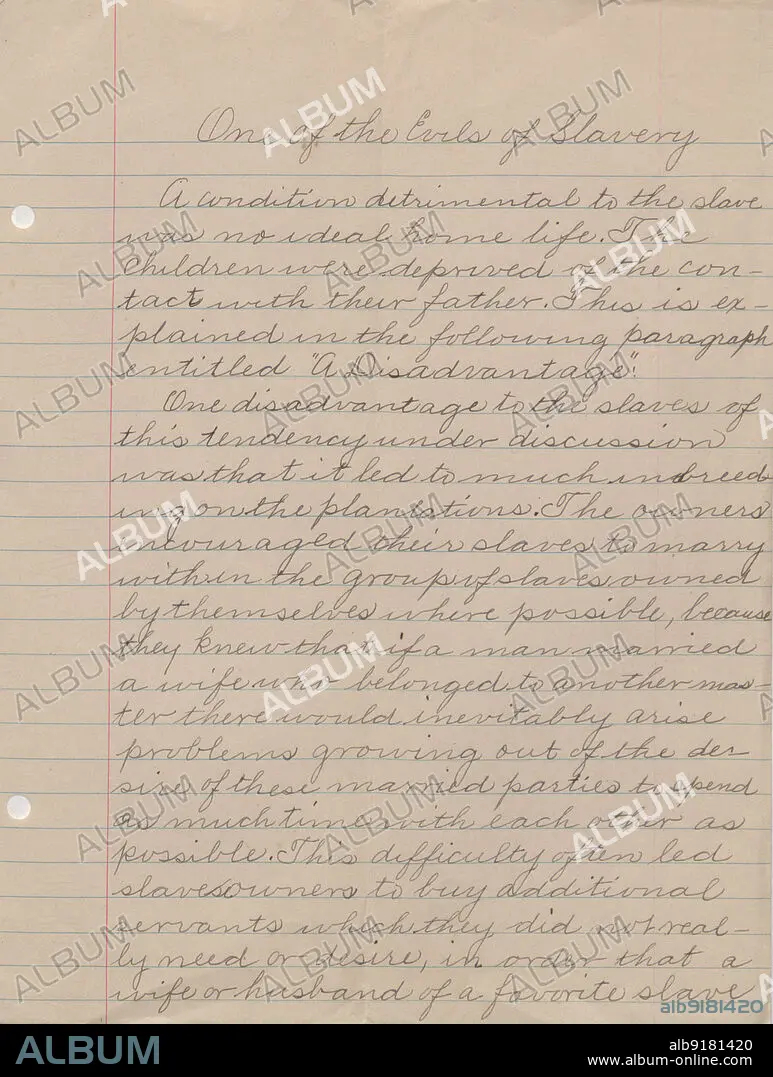 One of the Evils of Slavery
A condition detrimental to the slave
was no ideal home life. The
children were deprived of the con-
tact with their father. This is ex-
plained in the following paragraph
entitled "A Disadvantage":
One disadvantage to the slaves of
this tendency under discussion
was that it led to much inbreed
ing on the plantations. The owners
encouraged their slaves to marry
within the group of slaves owned
by themselves where possible, because
they knew that if a man married
a wife who belonged to another mas-
ter there would inevitably arise
problems growing out of the de-
sire of these married parties to spend
as much time with each other as
possible. This difficulty often led
slaveowners to buy additional
servants which they did not real-
ly need or desire, in order that a
wife or husband of a favorite slave
alb9181420
ALBUM
alb9181420
www.album-online.com